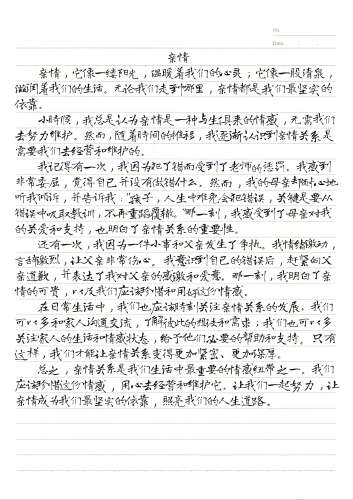 No.
Date.
亲情
亲情，它像一缕阳光，温暖着我们的心灵；它像一股清泉，
滋润着我们的生活。无论我们走到哪里，亲情都是我们最坚实的
依靠。
小时候，我总是认为亲情是一种与生俱来的情感，无需我们
去努力维护。然而，随着时间的推移，我逐渐认识到亲情关系是
需要我们去经营和维护的。
我记得有一次，我因为犯了错而受到了老师的惩罚。我感到
非常委屈，觉得自己并没有做错什么。然而，我的母亲却耐心地
听我倾诉，并告诉我："孩子，人生中难免会犯错误，关键是要从
错误中吸取教训，不再重蹈覆辙。"那一刻，我感受到了母亲对我
的关爱和支持，也明白了亲情关系的重要性。
还有一次，我因为一件小事和父亲发生了争执。我情绪激动，
言辞激烈，让父亲非常伤心。我意识到自己的错误后，赶紧向父
亲道歉，并表达了我对父亲的感激和爱意。那一刻，我明白了亲
情的可贵，以及我们应该珍惜和用好这份情感。
在日常生活中，我们也应该时刻关注亲情关系的发展。我们
可以多和家人沟通交流，了解彼此的想法和需求；我们也可以多
关注家人的生活和情感状态，给予他们必要的帮助和支持。只有
这样，我们才能让亲情关系变得更加紧密、更加深厚。
总之，亲情关系是我们生活中最重要的情感纽带之一。我们
应该珍惜这份情感，用心去经营和维护它。让我们一起努力，让
亲情成为我们最坚实的依靠，照亮我们的人生道路。